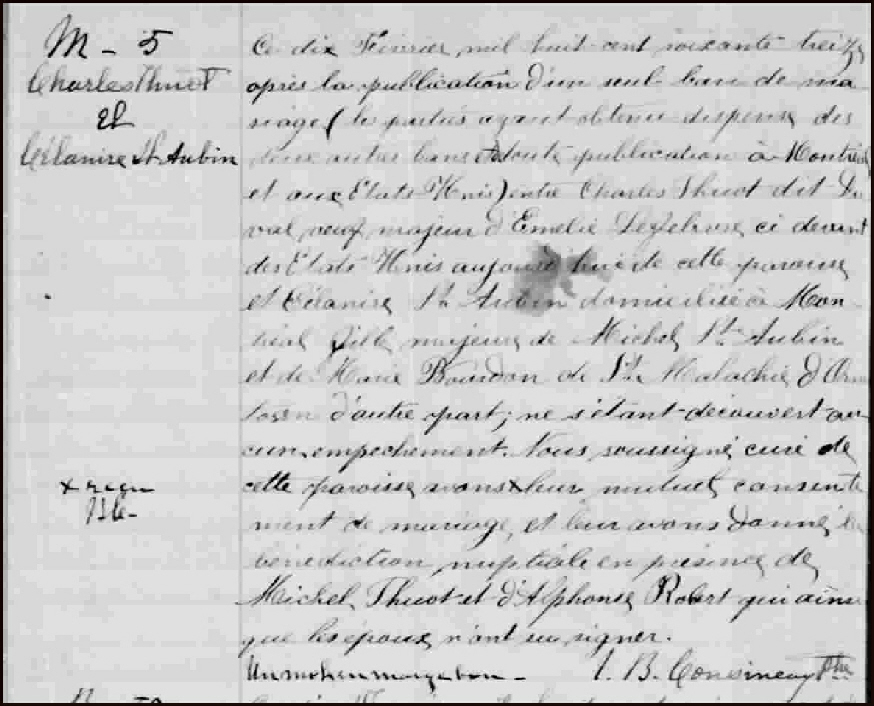 M - 5
Charles Thuot
Et
Célanire St. Aubin
Ce dix Février mil huit-cent soixante treize
après la publication d'un seul ban de ma
riage (les parties ayant obtenu dispense des
deux autres bans et toute publication à Montréal
et aux Etats-Unis) entre Charles Thuot dit Du
val veuf majeur d'Emelie Lefebvre, ci devant
des Etats-Unis aujourd'hui de cette paroisse
et Célanire St. Aubin domiciliée à Mon
tréal fille majeure de Michel St. Aubin
et de Marie Bourdon de St. Malachie d'Orms
town d'autre part; ne s'étant découvert au
cun empechement. Nous soussigné curé de
cette paroisse avons x leur mutuel consente
x reçu
ment de mariage, et leur avons donné la
bénédiction nuptiale en présence de
Michel Thuot et d'Alphonse Robert qui ainsi
que les époux n'ont su signer.
Un mot en marge bon. I. B. Cousineau Ptre